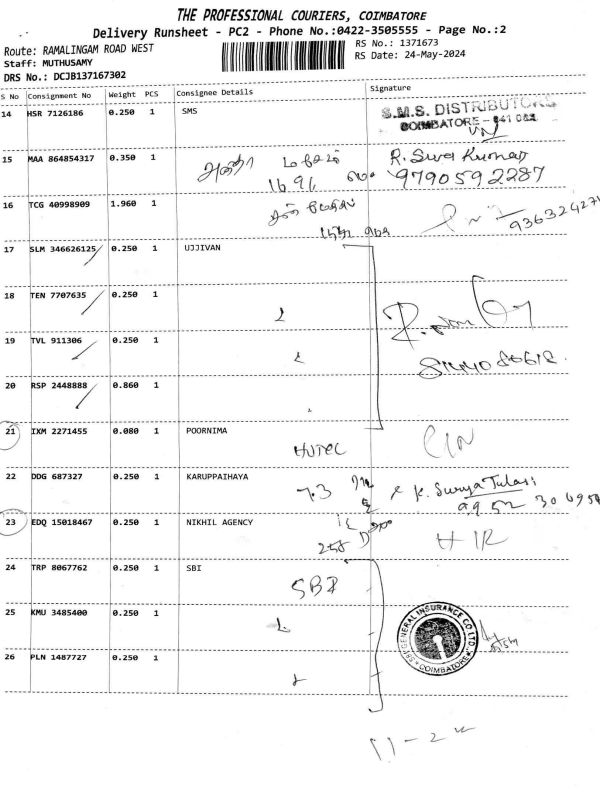 THE PROFESSIONAL COURIERS, COIMBATORE
Delivery Runsheet - PC2 - Phone No.:0422-3505555 - Page No.:2
Route: RAMALINGAM ROAD WEST
RS No.: 1371673
Staff: MUTHUSAMY
RS Date: 24-May-2024
DRS No.: DCJB137167302
S No Consignment No Weight PCS Consignee Details Signature
14 HSR 7126186 0.250 1 SMS
S.M.S. DISTRIBUTORS
COIMBATORE - 641 002
15 MAA 864854317 0.350 1
R. Siva Kumar
9790592287
16 TCG 40998909 1.960 1
17 SLM 346626125 0.250 1 UJJIVAN
18 TEN 7707635 0.250 1
19 TVL 911306 0.250 1
20 RSP 2448888 0.860 1
21 IXM 2271455 0.080 1 POORNIMA
22 DDG 687327 0.250 1 KARUPPAIHAYA
7.3
K. Surya Tulasi
23 EDQ 15018467 0.250 1 NIKHIL AGENCY
24 TRP 8067762 0.250 1 SBI
SBI
25 KMU 3485400 0.250 1
SBI GENERAL INSURANCE CO LTD
COIMBATORE
26 PLN 1487727 0.250 1